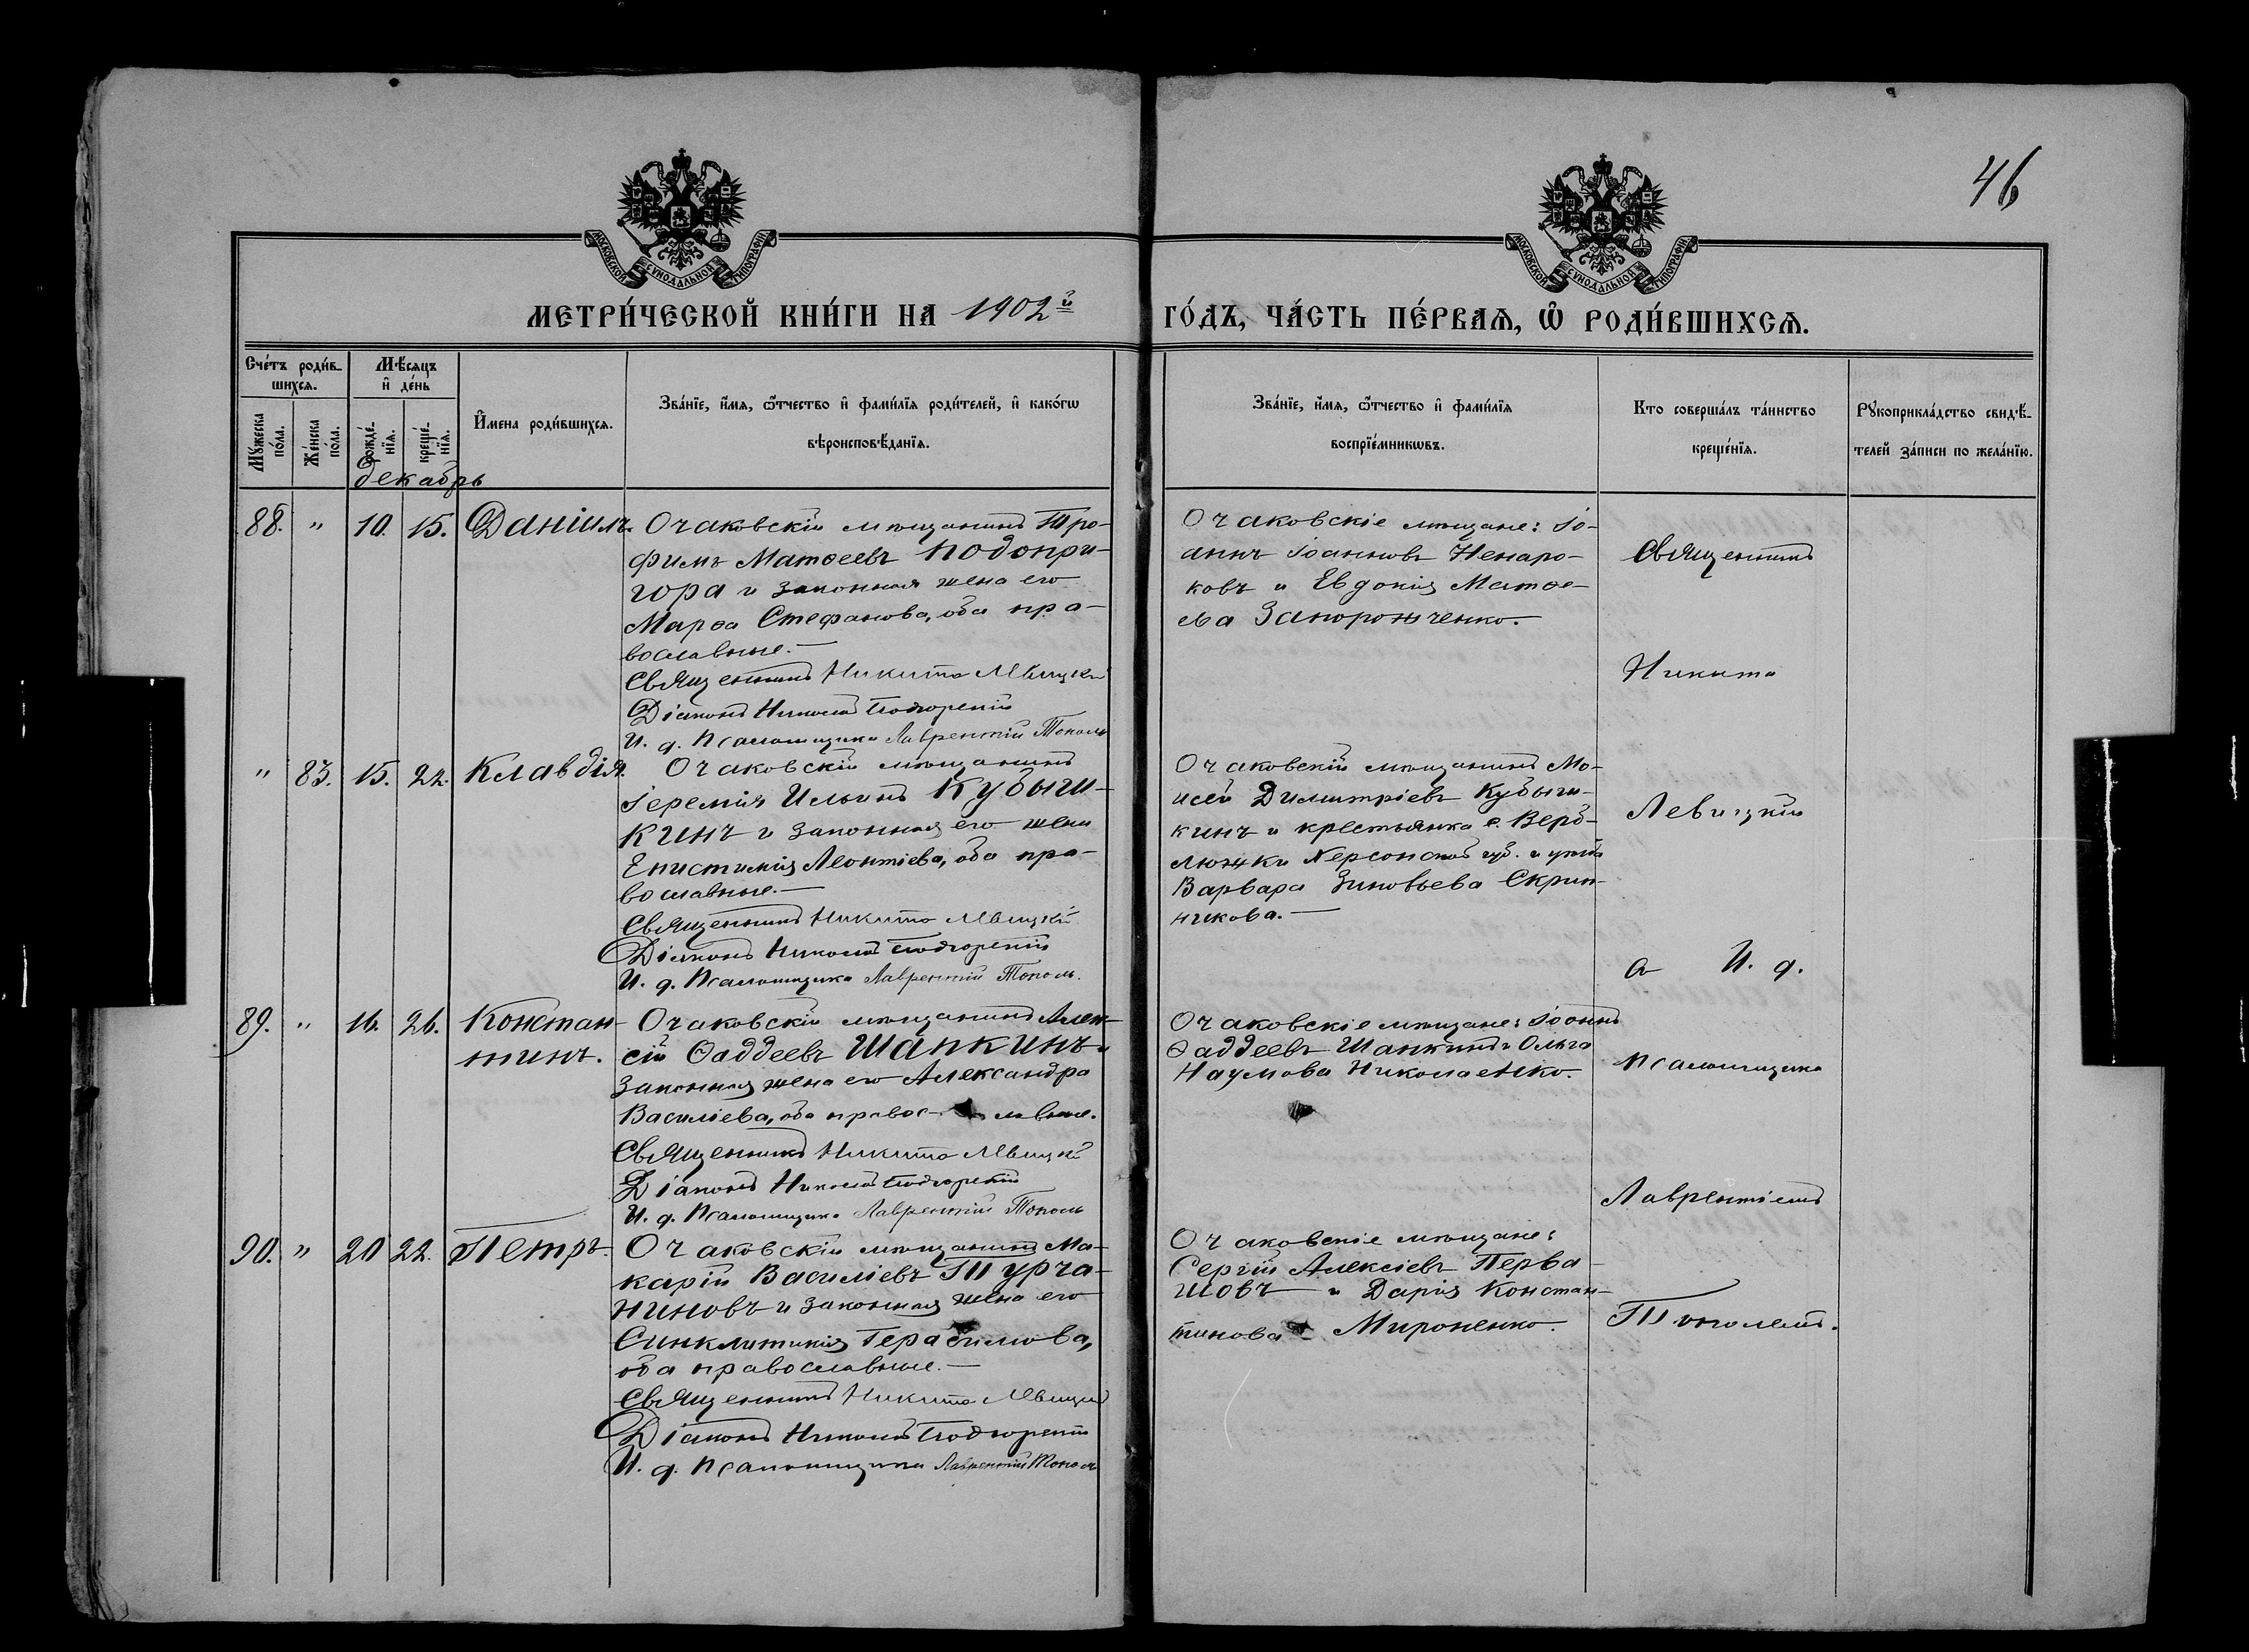 46
МОСКОВСКОЙ СУНОДАЛЬНОЙ ТИПОГРАФІИ
МОСКОВСКОЙ СУНОДАЛЬНОЙ ТИПОГРАФІИ
МЕТРИ́ЧЕСКОЙ КНИ́ГИ НА 1902й ГО́ДЪ, ЧА́СТЬ ПЕ́РВАѦ, Ѡ҆ РОДИ́ВШИХСѦ.
Сче́тъ роди́в-
шихсѧ.
Мꙋ́жеска по́ла.
Же́нска по́ла.
Мѣ́сѧцъ
и҆ де́нь
рожде́-нїѧ.
креще́-нїѧ.
И҆мена роди́вшихсѧ.
Зва́нїе, и҆́мѧ, ѻ҆́тчество и҆ фами́лїѧ роди́телей, и҆ како́гѡ
вѣроисповѣ́данїѧ.
Зва́нїе, и҆́мѧ, ѻ҆́тчество и҆ фами́лїѧ
воспрїе́мникѡвъ.
Кто соверша́лъ та́инство
креще́нїѧ.
Рꙋкоприкла́дство свидѣ́-
телей за́писи по жела́нїю.
декабрь
88. " 10. 15. Даніилъ.
Очаковскій мѣщанинъ Тро-
фимъ Матѳеевъ Подопри-
гора и законная жена его
Марѳа Стефанова, оба пра-
вославные.—
Священникъ Никита Левицкій
Діаконъ Николай Подгорскій
И. д. Псаломщика Лаврентій Тополь
Очаковскіе мѣщане: Іо-
аннъ Іоанновъ Ненаро-
ковъ и Евдокія Матѳе-
ева Запорожченко.
Священникъ
Никита
" 83. 15. 22. Клавдія.
Очаковскій мѣщанинъ
Іеремія Ильинъ Кубыш-
кинъ и законная его жена
Епистимія Леонтіева, оба пра-
вославные.—
Священникъ Никита Левицкій
Діаконъ Николай Подгорскій
И. д. Псаломщика Лаврентій Тополь.
Очаковскій мѣщанинъ Мо-
исей Димитріевъ Кубыш-
кинъ и крестьянка с. Верб-
люжки Херсонской губ. и уѣзда
Варвара Зиновьева Скрип-
никова.—
Левицкій
а И. д.
89. " 16. 26. Констан-
тинъ.
Очаковскій мѣщанинъ Алек-
сій Ѳаддеевъ Шапкинъ и
законная жена его Александра
Василіева, оба правос-лавные.
Священникъ Никита Левицкій
Діаконъ Николай Подгорскій
И. д. Псаломщика Лаврентій Тополь
Очаковскіе мѣщане: Іоаннъ
Ѳаддеевъ Шапкинъ и Ольга
Наумова Николаенко.
Псаломщика
Лаврентіемъ
90. " 20 22. Петръ.
Очаковскій мѣщанинъ Ма-
карій Василіевъ Турча-
ниновъ и законная жена его
Синклитикія Герасимова,
оба православные.—
Священникъ Никита Левицкій
Діаконъ Николай Подгорскій
И. д. Псаломщика Лаврентій Тополь
Очаковскіе мѣщане:
Сергій Алексіевъ Перва-
шовъ и Дарія Констан-
тинова Мироненко.
Тополемъ.